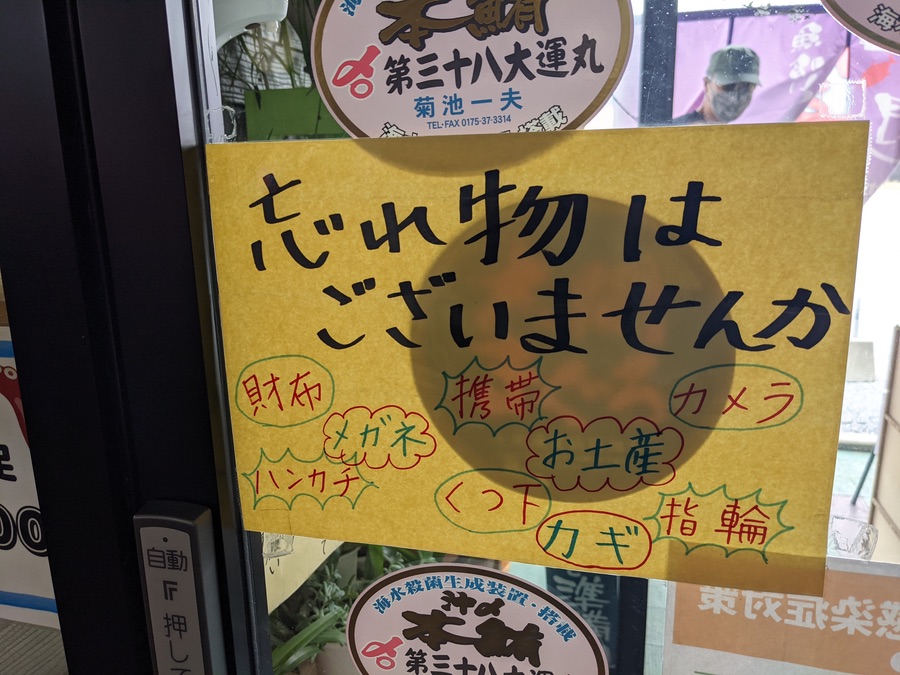 本鮪
第三十八大運丸
菊池一夫
TEL・FAX 0175-37-3314
忘れ物は
ございませんか
財布
携帯
カメラ
メガネ
お土産
ハンカチ
くつ下
指輪
カギ
自動
『押して
海水殺菌生成装置・搭載
本鮪
第三十八大運
感染症対策